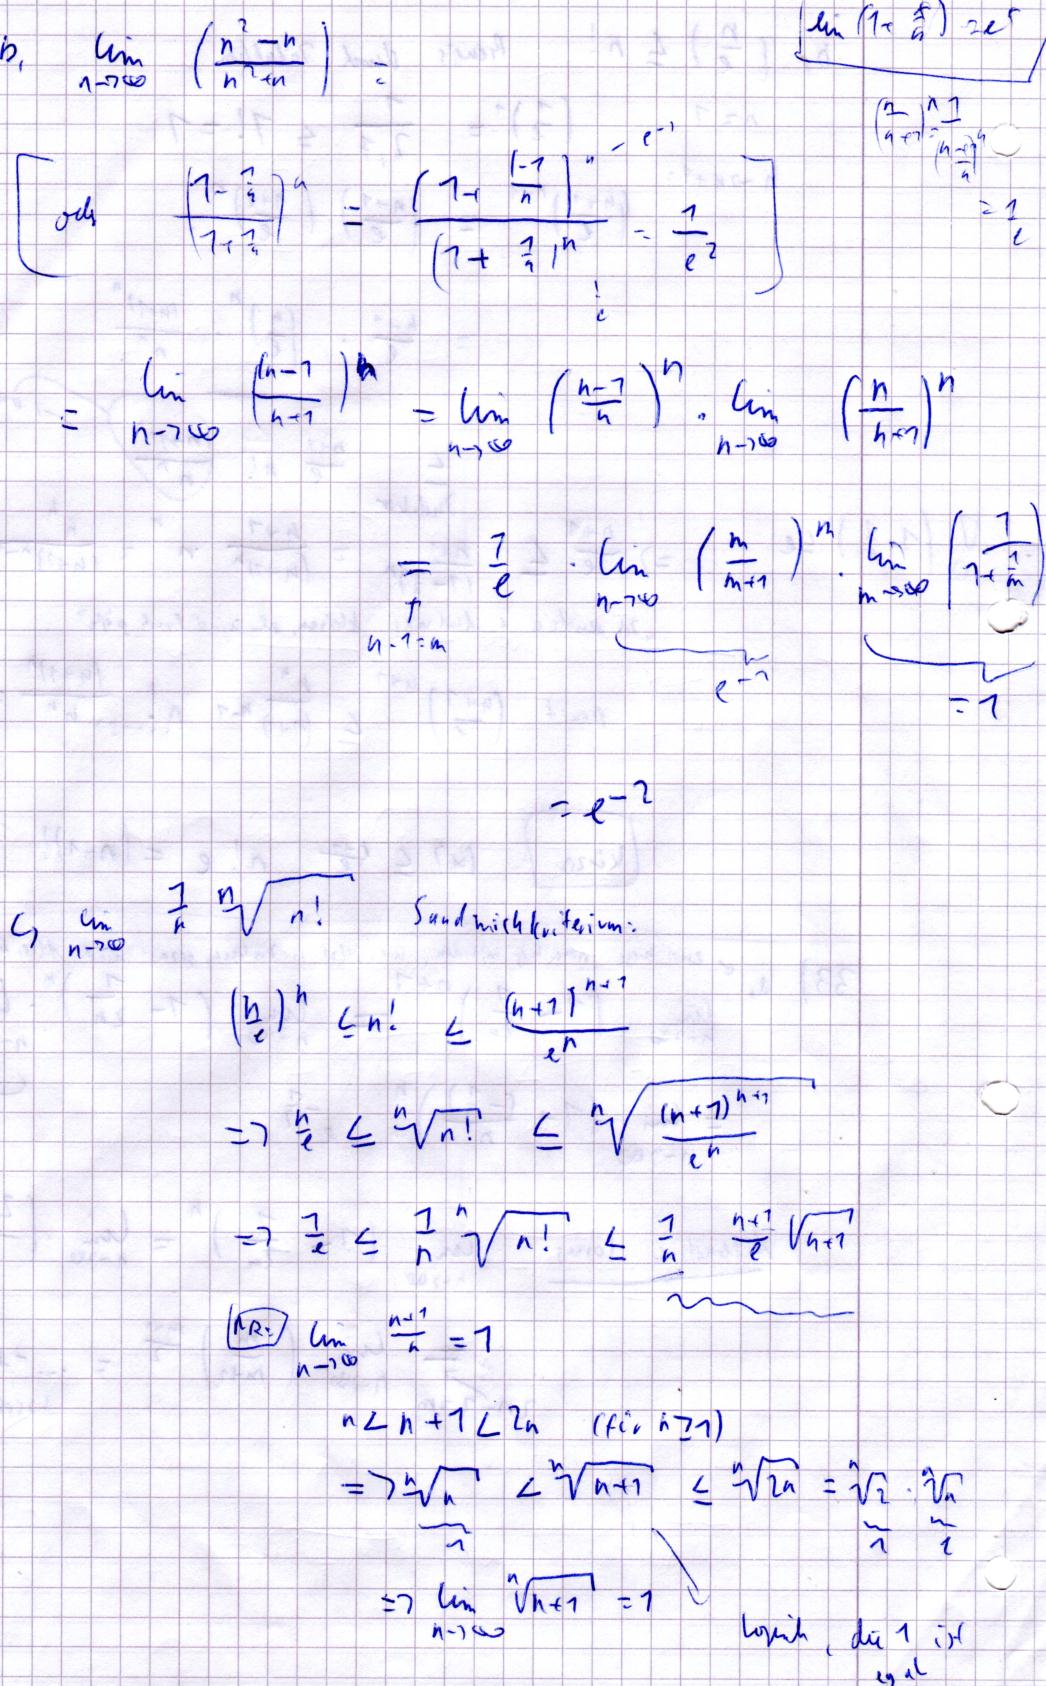 b, lim n→∞ ( (n² - n)/(n² + n) ) =
lim (1 + x/n) = e^x
(n/(n+1))^n = 1/((n+1)/n)^n
= 1/e
[ oder ((1 - 1/n)/(1 + 1/n))^n = (1 + (-1/n))^n → e^-1 / (1 + 1/n)^n = 1/e² ]
e
= lim n→∞ ((n-1)/(n+1))^n = lim n→∞ ((n-1)/n)^n · lim n→∞ (n/(n+1))^n
= 1/e · lim n→∞ (m/(m+1))^m · lim m→∞ (1/(1 + 1/m))
↑
n-1=m
e^-1 = 1
= e^-2
c, lim n→∞ 1/n ⁿ√(n!) Sandwichkriterium:
(n/e)^n ≤ n! ≤ (n+1)^(n+1)/e^n
=> n/e ≤ ⁿ√(n!) ≤ ⁿ√((n+1)^(n+1)/e^n)
=> 1/e ≤ 1/n ⁿ√(n!) ≤ 1/n (n+1)/e √(n+1)
NR: lim n→∞ (n+1)/n = 1
n < n+1 < 2n (für n≥1)
=> ⁿ√n < ⁿ√(n+1) ≤ ⁿ√(2n) = ⁿ√2 · ⁿ√n
1 1 1
=> lim n→∞ ⁿ√(n+1) = 1
Logisch, die 1 ist
egal